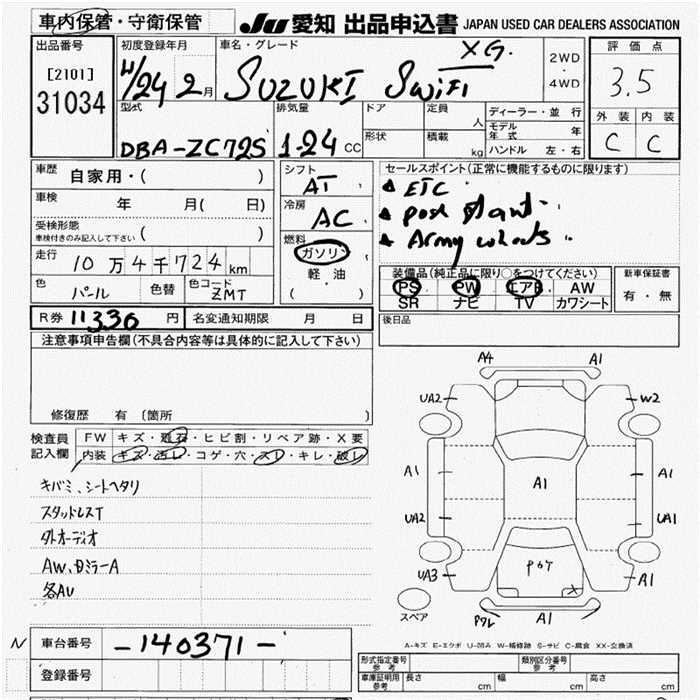 車内保管・守衛保管 JU 愛知 出品申込書 JAPAN USED CAR DEALERS ASSOCIATION
出品番号
[2101]
31034
初度登録年月
H/24 2月
車名・グレード
SUZUKI Swift XG.
2WD
・
4WD
評価点
3.5
外装 内装
C C
型式
DBA-ZC72S
排気量
1-24 CC
ドア
形状
定員 人
積載 kg
ディーラー・並行
モデル年式 年
ハンドル 左・右
車歴 自家用・( )
車検 年 月( 日)
受検形態
車検付きのみ記入して下さい ( )
走行 10万4千724km
色 パール 色替 色コード ZMT
シフト AT
冷房 AC
燃料
ガソリン
軽油
( )
セールスポイント(正常に機能するものに限ります)
ETC
Push Start
Army wheels
装備品(純正品に限り○をつけてください)
PS PW エアB AW
SR ナビ TV カワシート
新車保証書
有・無
R券 11336円 名変通知期限 月 日
後日品
注意事項申告欄(不具合内容等は具体的に記入して下さい)
修復歴 有〔箇所 〕
検査員
記入欄
FW キズ・飛石・ヒビ割・リペア跡・X要
内装 キズ・汚レ・コゲ・穴・スレ・キレ・破レ
キバミ、シートヘタリ
スタッドレスT
外オーディオ
AW、Dミラー A
各AU
A4 A1
UA2 W2
A1 A1 A1
UA2 UA1
UA3 A1
X
A1
スペア
A-キズ E-エクボ U-凹み W-補修跡 S-サビ C-腐食 XX-交換済
N 車台番号 -140371-
登録番号
形式指定番号
参考
類別区分番号
参考
車庫証明用
参考
長さ cm 幅 cm 高さ cm